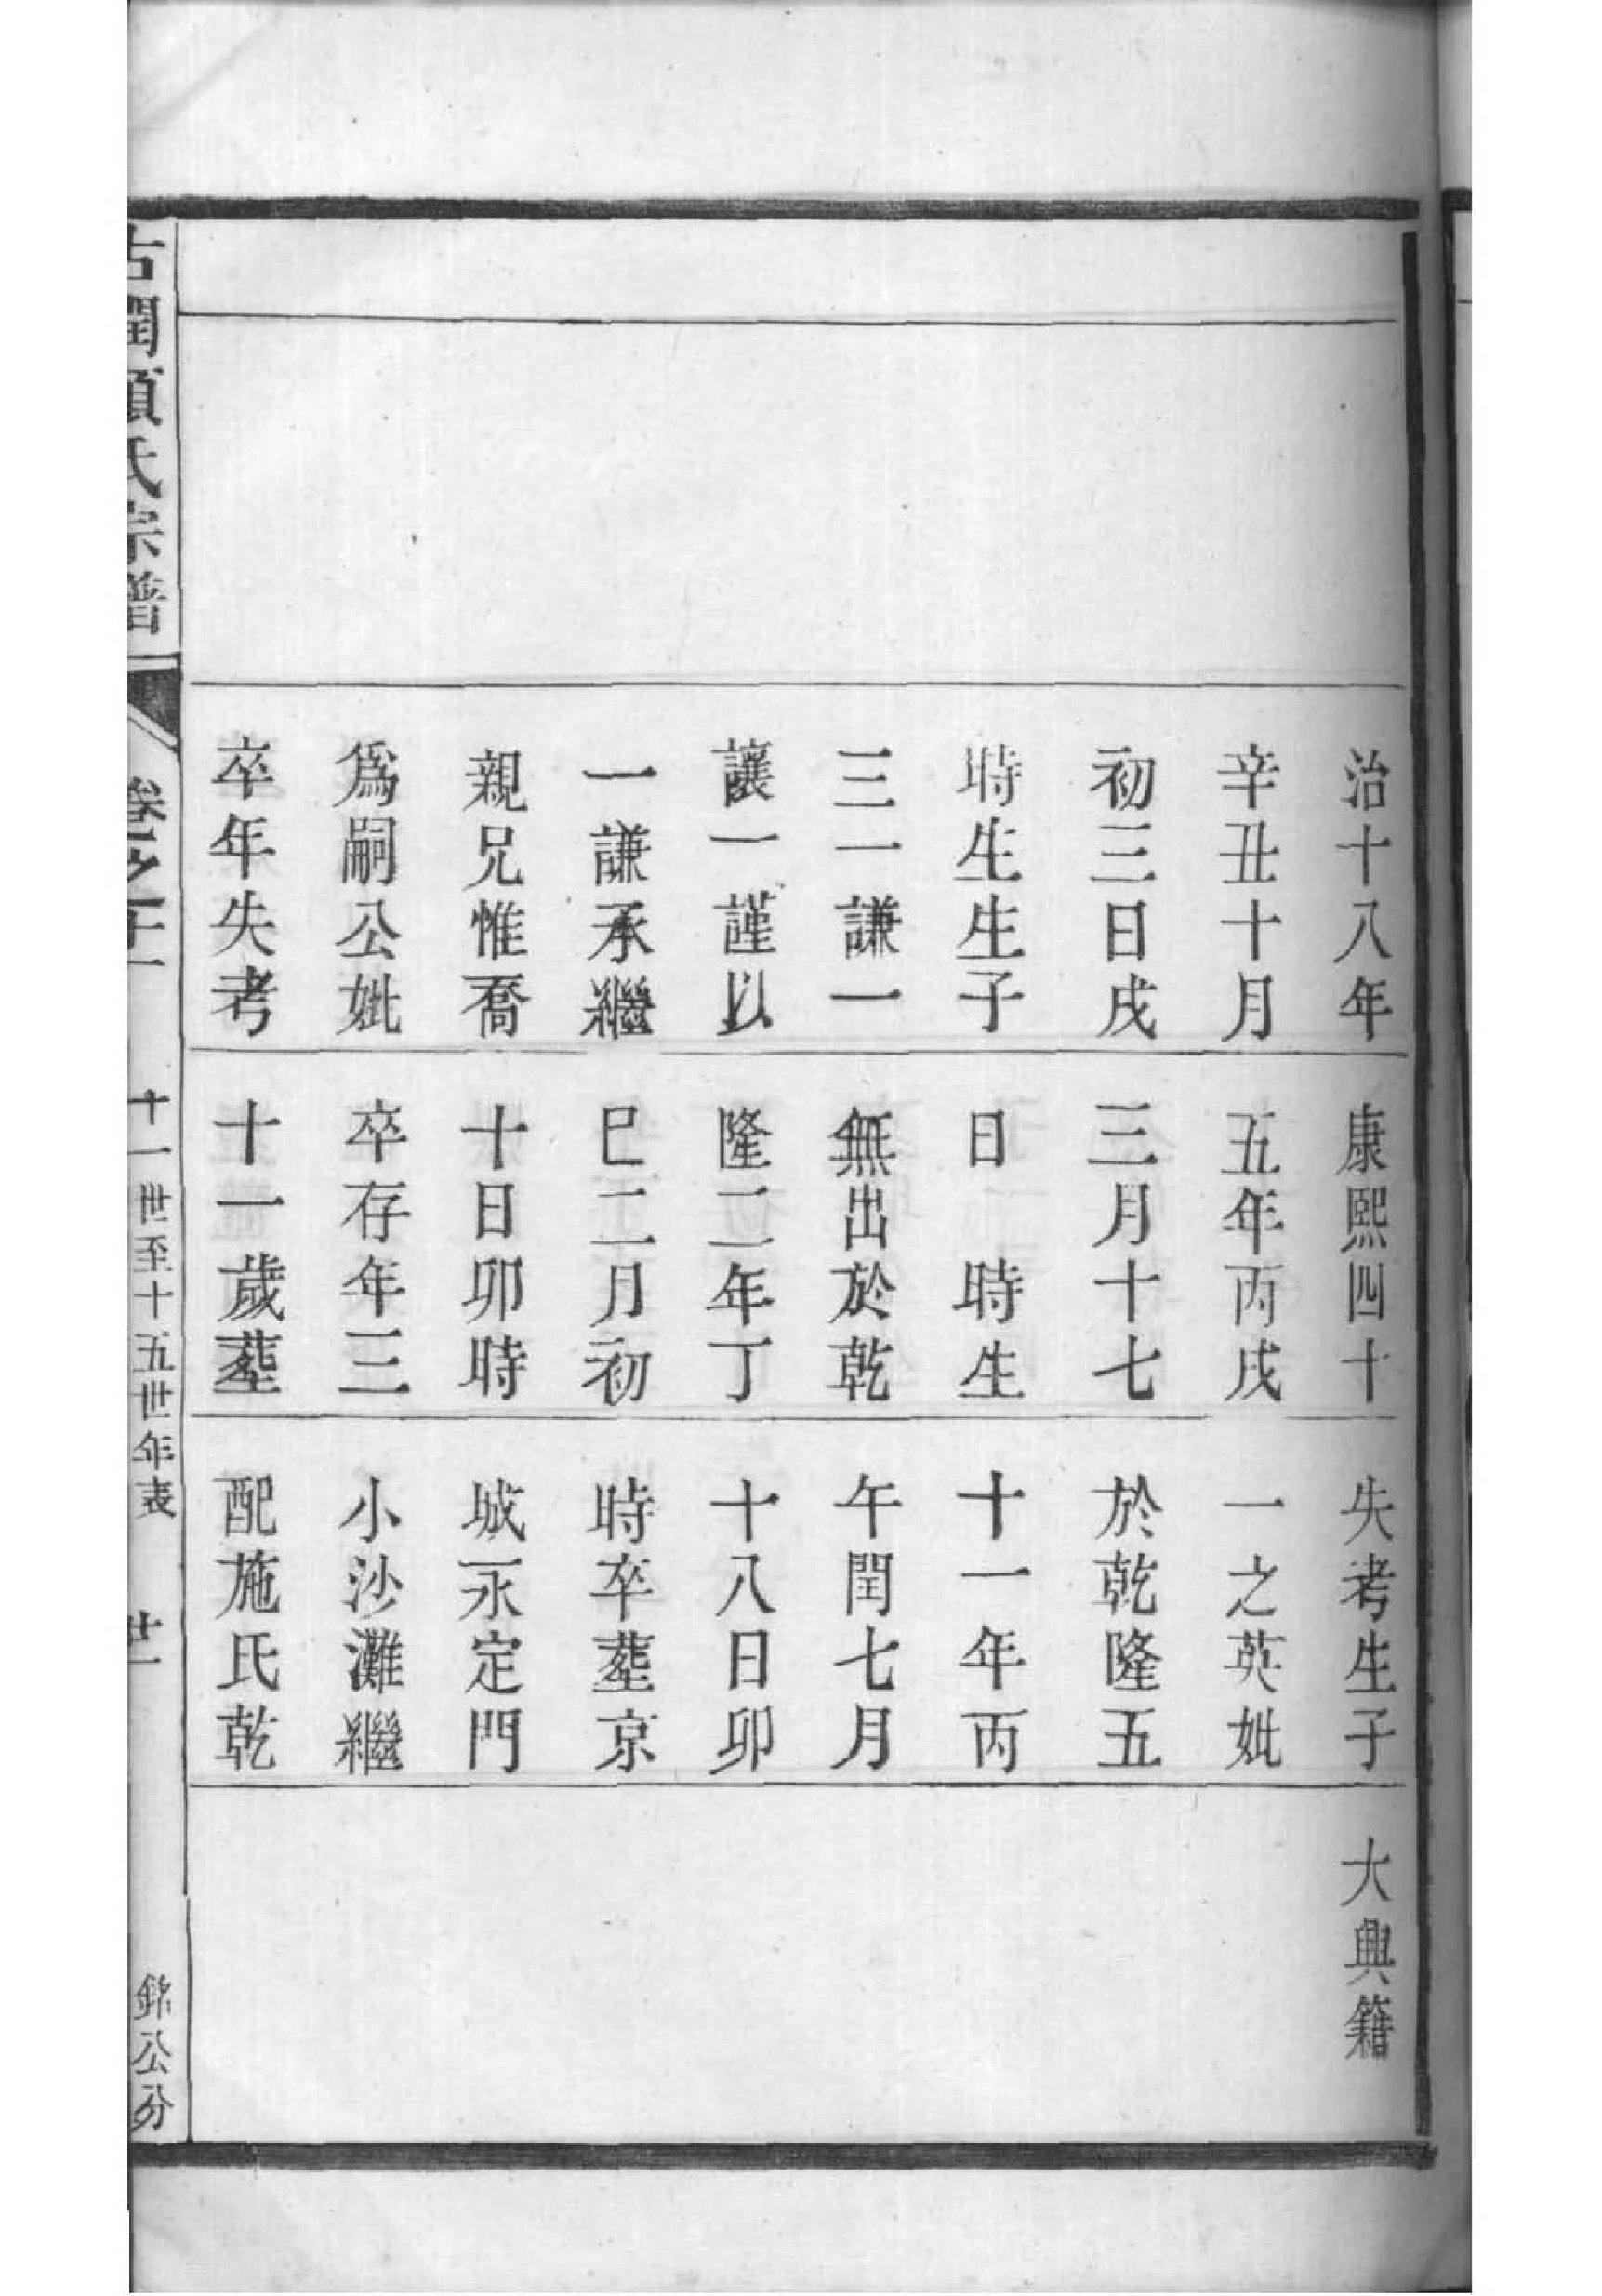 治十八年
辛丑十月
初三日戌
時生生子
三一謙一
讓一謹以
一謙承繼
親兄惟喬
爲嗣公妣
卒年失考
康熙四十
五年丙戌
三月十七
日　時生
無出於乾
隆二年丁
巳二月初
十日卯時
卒存年三
十一歲塟
失考生子
一之英妣
於乾隆五
十一年丙
午閏七月
十八日卯
時卒塟京
城永定門
小沙灘繼
配施氏乾
大興籍
古潤項氏宗譜
卷之二十一
十一世至十五世年表
廿一
錦公分